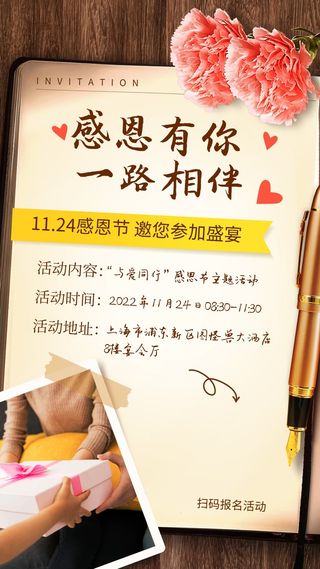 INVITATION
感恩有你
一路相伴
11.24感恩节 邀您参加盛宴
活动内容：“与爱同行”感恩节主题活动
活动时间：2022年11月24日 08:30-11:30
活动地址：上海市浦东新区图怪兽大酒店
8楼宴会厅
扫码报名活动